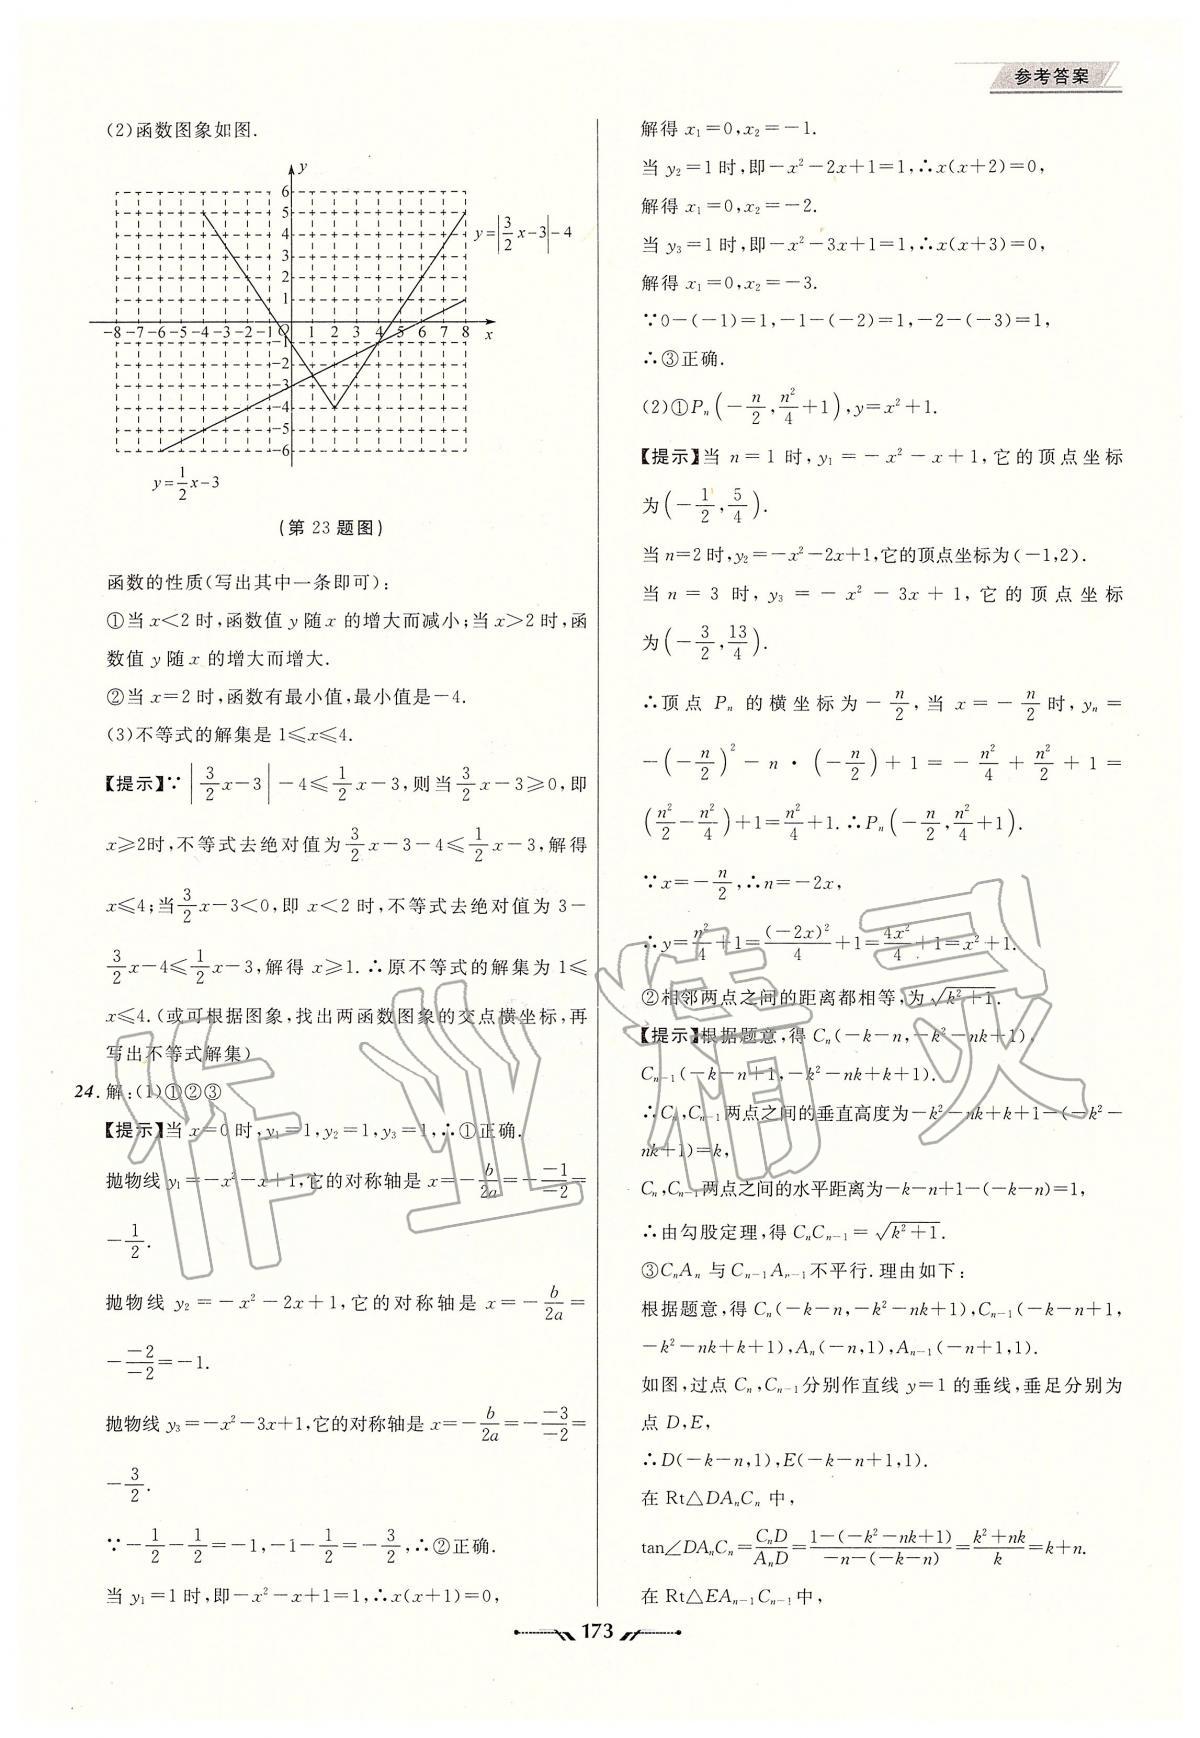 参考答案
(2)函数图象如图.
y
6
5
4
3
2
1
y=|3/2 x-3|-4
-8 -7 -6 -5 -4 -3 -2 -1 O 1 2 3 4 5 6 7 8 x
-1
-2
-3
-4
-5
-6
y=1/2 x-3
(第 23 题图)
函数的性质(写出其中一条即可):
①当 x<2 时,函数值 y 随 x 的增大而减小;当 x>2 时,函
数值 y 随 x 的增大而增大.
②当 x=2 时,函数有最小值,最小值是-4.
(3)不等式的解集是 1≤x≤4.
【提示】∵|3/2 x-3|-4≤1/2 x-3,则当 3/2 x-3≥0,即
x≥2时,不等式去绝对值为 3/2 x-3-4≤1/2 x-3,解得
x≤4;当 3/2 x-3<0,即 x<2 时,不等式去绝对值为 3-
3/2 x-4≤1/2 x-3,解得 x≥1.∴原不等式的解集为 1≤
x≤4.(或可根据图象,找出两函数图象的交点横坐标,再
写出不等式解集)
24.解:(1)①②③
【提示】当 x=0 时,y₁=1,y₂=1,y₃=1,∴①正确.
抛物线 y₁=-x²-x+1,它的对称轴是 x=-b/2a=-(-1)/(-2)=
-1/2.
抛物线 y₂=-x²-2x+1,它的对称轴是 x=-b/2a=
-(-2)/(-2)=-1.
抛物线 y₃=-x²-3x+1,它的对称轴是 x=-b/2a=-(-3)/(-2)=
-3/2.
∵-1/2-1/2=-1,-1-1/2=-3/2,∴②正确.
当 y₁=1 时,即-x²-x+1=1,∴x(x+1)=0,
解得 x₁=0,x₂=-1.
当 y₂=1 时,即-x²-2x+1=1,∴x(x+2)=0,
解得 x₁=0,x₂=-2.
当 y₃=1 时,即-x²-3x+1=1,∴x(x+3)=0,
解得 x₁=0,x₂=-3.
∵0-(-1)=1,-1-(-2)=1,-2-(-3)=1,
∴③正确.
(2)①Pₙ(-n/2,n²/4+1),y=x²+1.
【提示】当 n=1 时,y₁=-x²-x+1,它的顶点坐标
为(-1/2,5/4).
当 n=2 时,y₂=-x²-2x+1,它的顶点坐标为(-1,2).
当 n=3 时,y₃=-x²-3x+1,它的顶点坐标
为(-3/2,13/4).
∴顶点 Pₙ 的横坐标为-n/2,当 x=-n/2 时,yₙ=
-(-n/2)²-n·(-n/2)+1=-n²/4+n²/2+1=
(n²/2-n²/4)+1=n²/4+1.∴Pₙ(-n/2,n²/4+1).
∵x=-n/2,∴n=-2x,
∴y=n²/4+1=(-2x)²/4+1=4x²/4+1=x²+1.
②相邻两点之间的距离都相等,为√(k²+1).
【提示】根据题意,得 Cₙ(-k-n,-k²-nk+1),
Cₙ₋₁(-k-n+1,-k²-nk+k+1).
∴Cₙ,Cₙ₋₁两点之间的垂直高度为-k²-nk+k+1-(-k²-
nk+1)=k,
Cₙ,Cₙ₋₁两点之间的水平距离为-k-n+1-(-k-n)=1,
∴由勾股定理,得 CₙCₙ₋₁=√(k²+1).
③CₙAₙ 与 Cₙ₋₁Aₙ₋₁不平行.理由如下:
根据题意,得 Cₙ(-k-n,-k²-nk+1),Cₙ₋₁(-k-n+1,
-k²-nk+k+1),Aₙ(-n,1),Aₙ₋₁(-n+1,1).
如图,过点 Cₙ,Cₙ₋₁分别作直线 y=1 的垂线,垂足分别为
点 D,E,
∴D(-k-n,1),E(-k-n+1,1).
在 Rt△DAₙCₙ 中,
tan∠DAₙCₙ=CₙD/AₙD=(1-(-k²-nk+1))/(-n-(-k-n))=(k²+nk)/k=k+n.
在 Rt△EAₙ₋₁Cₙ₋₁中,
173
作业精灵